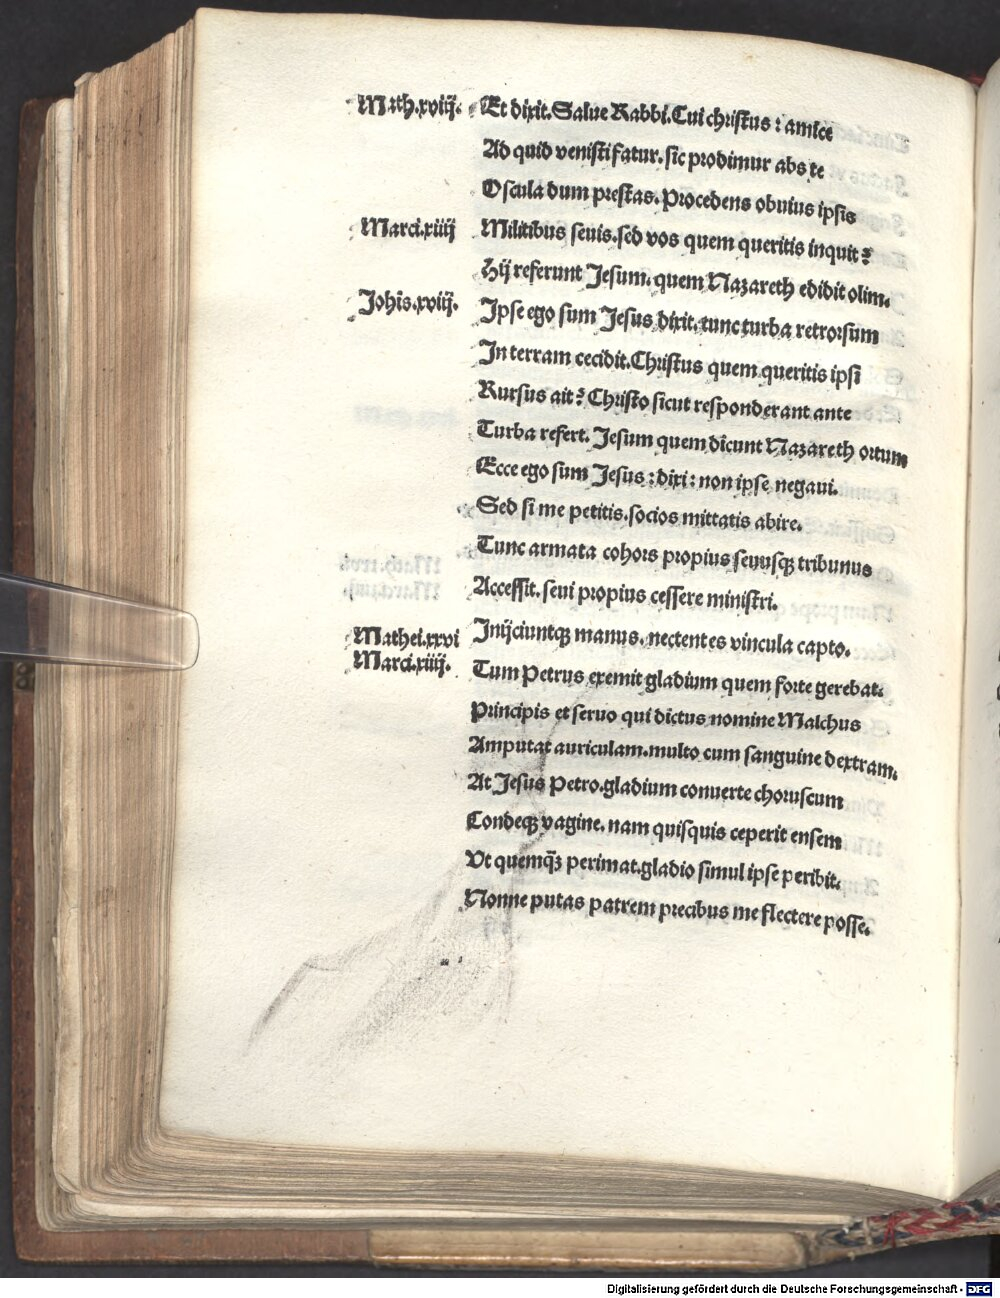 Math.xviij. Et dixit. Salue Rabbi. Cui christus : amice
Ad quid venisti fatur. sic prodimur abs te
Oscula dum prestas. Procedens obuius ipsis
Marci.xiiij Militibus seuis. sed vos quem queritis inquit?
Hij referunt Jesum. quem Nazareth edidit olim.
Johis.xviij. Ipse ego sum Jesus dixit. tunc turba retrorsum
In terram cecidit. Christus quem queritis ipsi
Rursus ait? Christo sicut responderant ante
Turba refert. Jesum quem dicunt Nazareth ortum
Ecce ego sum Jesus : dixi : non ipse negaui.
Sed si me petitis. socios mittatis abire.
Tunc armata cohors propius seuusqꝫ tribunus
Accessit. seui propius cessere ministri.
Inijciuntqꝫ manus. nectentes vincula capto.
Mathei.xxvi
Marci.xiiij. Tum Petrus exemit gladium quem forte gerebat.
Principis et seruo qui dictus nomine Malchus
Amputat auriculam. multo cum sanguine dextram.
At Jesus Petro. gladium conuerte choruscum
Condeqꝫ vagine. nam quisquis ceperit ensem
Vt quemqꝫ̃ perimat. gladio simul ipse peribit.
Nonne putas patrem precibus me flectere posse.
Digitalisierung gefördert durch die Deutsche Forschungsgemeinschaft - DFG